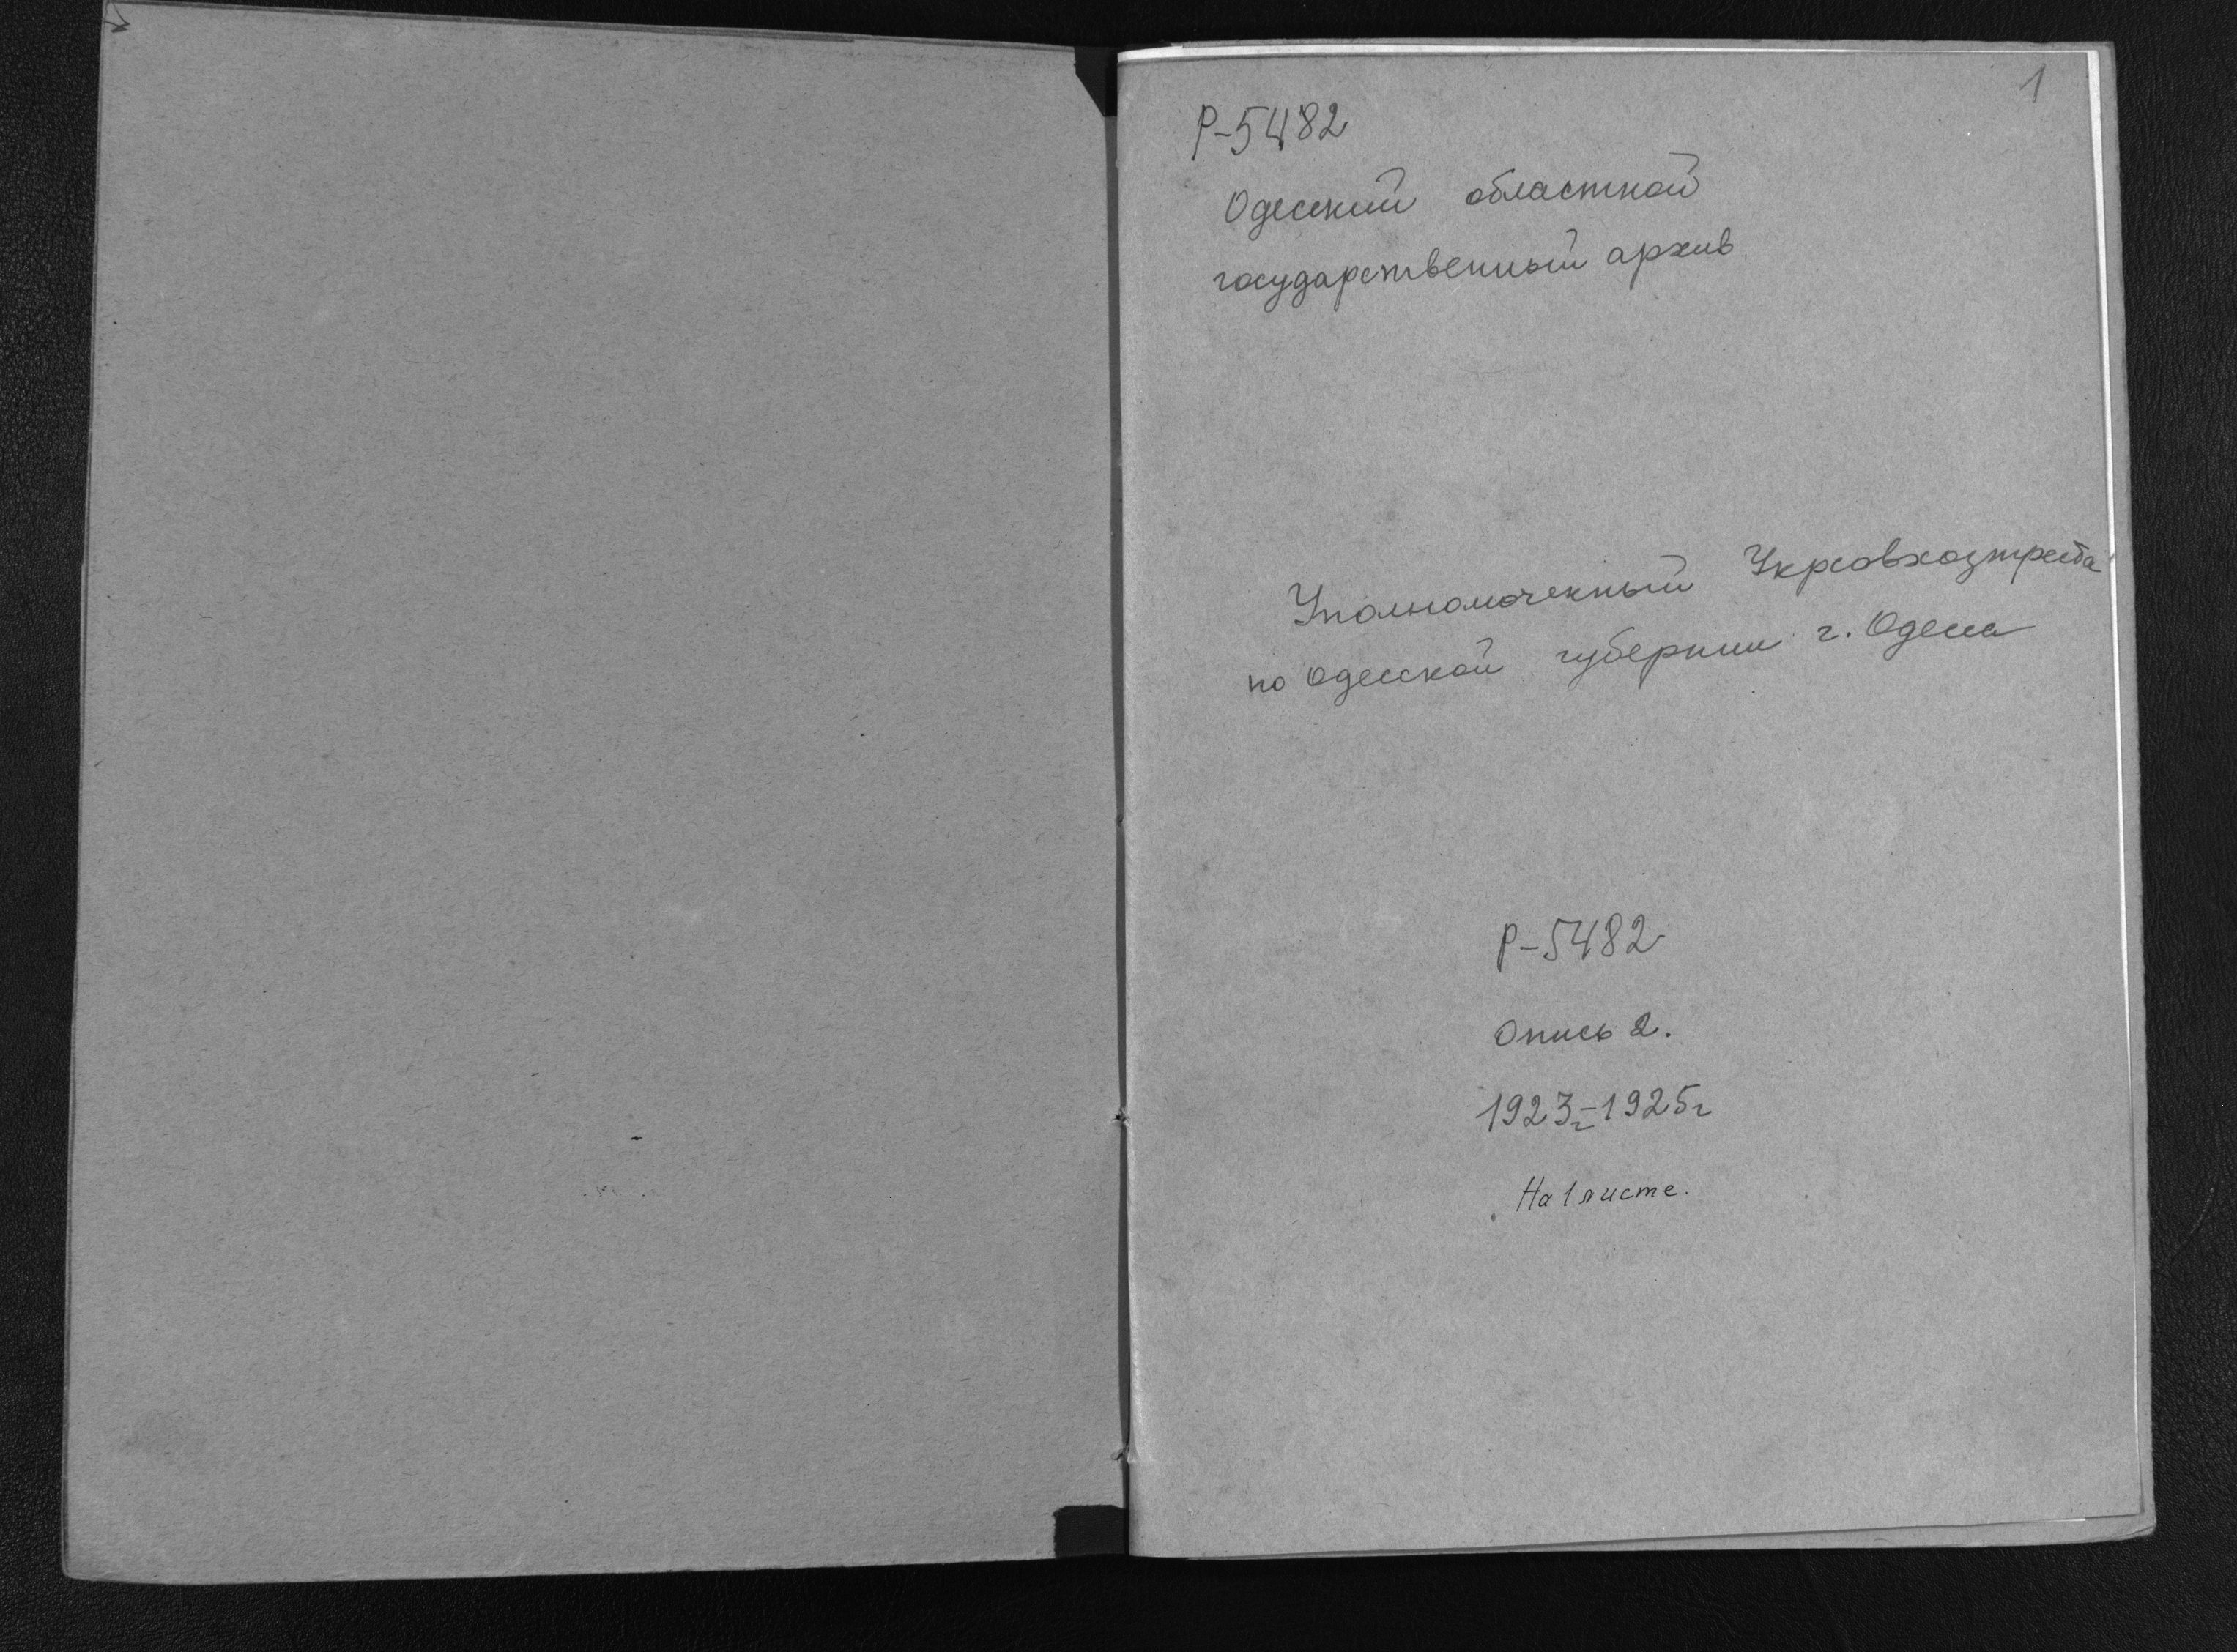 1
Р-5482
Одесский областной
государственный архив.
Уполномоченный Укрсовхозтреста
по Одесской губернии г. Одесса
Р-5482
Опись 2.
1923г-1925г
На 1 листе.